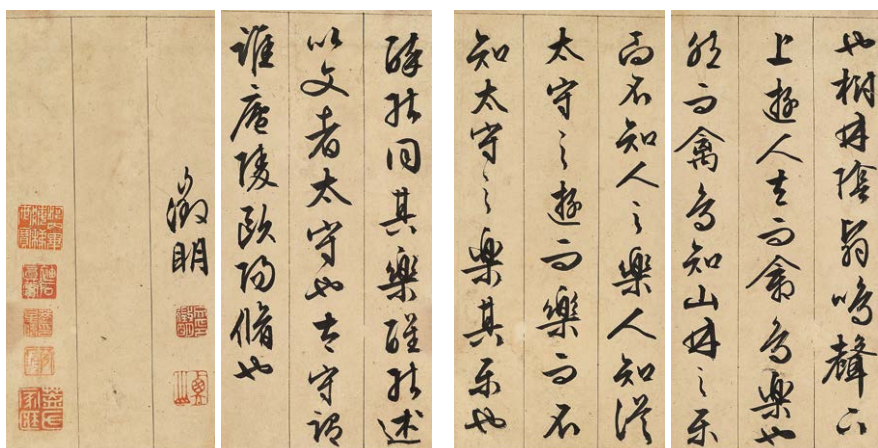 也樹林陰翳鳴聲下
上遊人去而禽鳥樂也
然而禽鳥知山林之樂
而不知人之樂人知從
太守之遊而樂而不
知太守之樂其樂也
醉能同其樂醒能述
以文者太守也太守謂
誰廬陵歐陽脩也
徵明